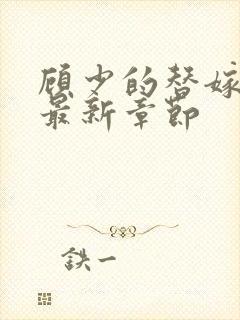 顾少的替嫁
最新章节
鉄一